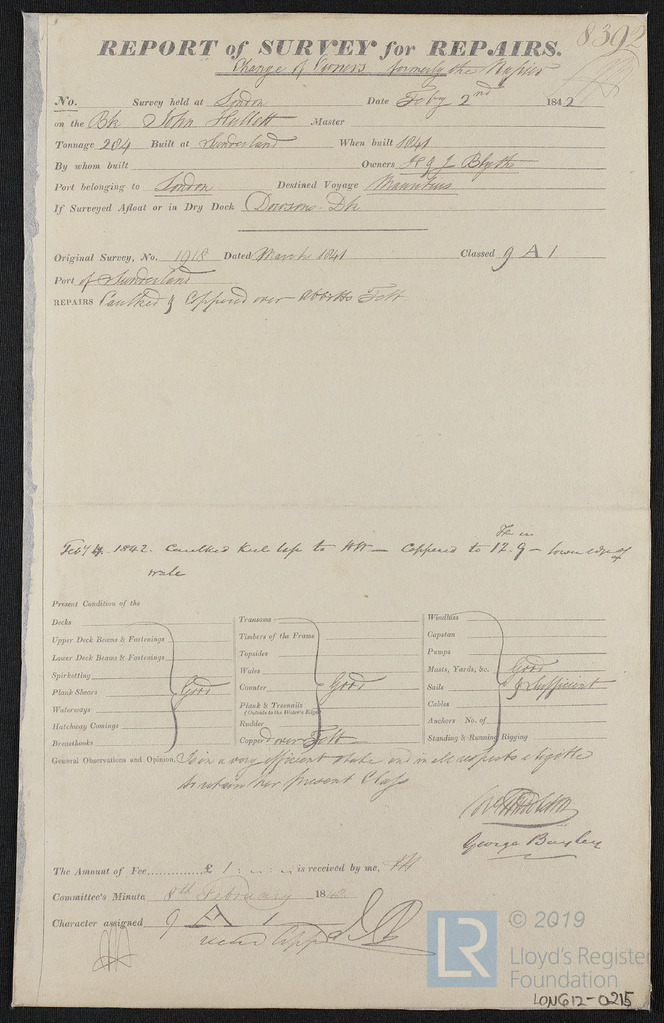 8392
REPORT of SURVEY for REPAIRS.
Change of Owners formerly the Napier
No. Survey held at London Date Feby 2nd 1842
on the Bk John Hullett Master
Tonnage 204 Built at Sunderland When built 1841
By whom built Owners H & J Blyth
Port belonging to London Destined Voyage Mauritius
If Surveyed Afloat or in Dry Dock Dowsons Dk
Original Survey, No. 1918 Dated March 1841 Classed 9 A 1
Port of Sunderland
REPAIRS Caulked & Coppered over Felt
Feby 4 1842. Caulked Keel up to WW — Coppered to 12.9 — lower edge of
wale
Present Condition of the
Decks
Upper Deck Beams & Fastenings
Lower Deck Beams & Fastenings
Spirketting
Plank Shears Good
Waterways
Hatchway Comings
Breasthooks
Transoms
Timbers of the Frame
Topsides
Wales
Counter Good
Plank & Treenails
(Outside to the Water's Edge)
Rudder
Copper over Felt
Windlass
Capstan
Pumps
Masts, Yards, &c. Good
Sails & Sufficient
Cables
Anchors No. of
Standing & Running Rigging
General Observations and Opinion, Is in a very efficient state and in all respects eligible
to retain her present Class
George Bayley
The Amount of Fee £ 1 : is received by me,
Committee's Minute 8th February 1842
Character assigned 9 A 1
LR © 2019
Lloyd's Register
Foundation
LON612-0215